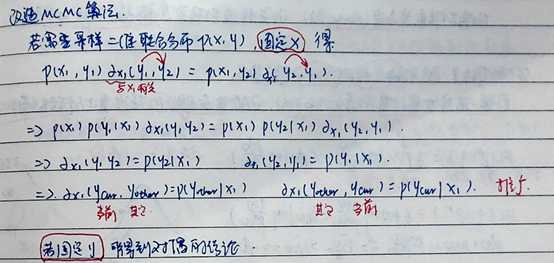 改造MCMC算法.
若需要采样二维联合分布 p(x,y), 固定x 得
p(x₁, y₁) α_{x₁}(y₁, y₂) = p(x₁, y₂) α_{x₁}(y₂, y₁).
与x₁有关
=> p(x₁) p(y₁|x₁) α_{x₁}(y₁, y₂) = p(x₁) p(y₂|x₁) α_{x₁}(y₂, y₁).
=> α_{x₁}(y₁, y₂) = p(y₂|x₁) α_{x₁}(y₂, y₁) = p(y₁|x₁).
=> α_{x₁}(y_{cur}, y_{other}) = p(y_{other}|x₁) α_{x₁}(y_{other}, y_{cur}) = p(y_{cur}|x₁). 推广.
当前 其它 其它 当前
若固定y 可得到对偶的结论.